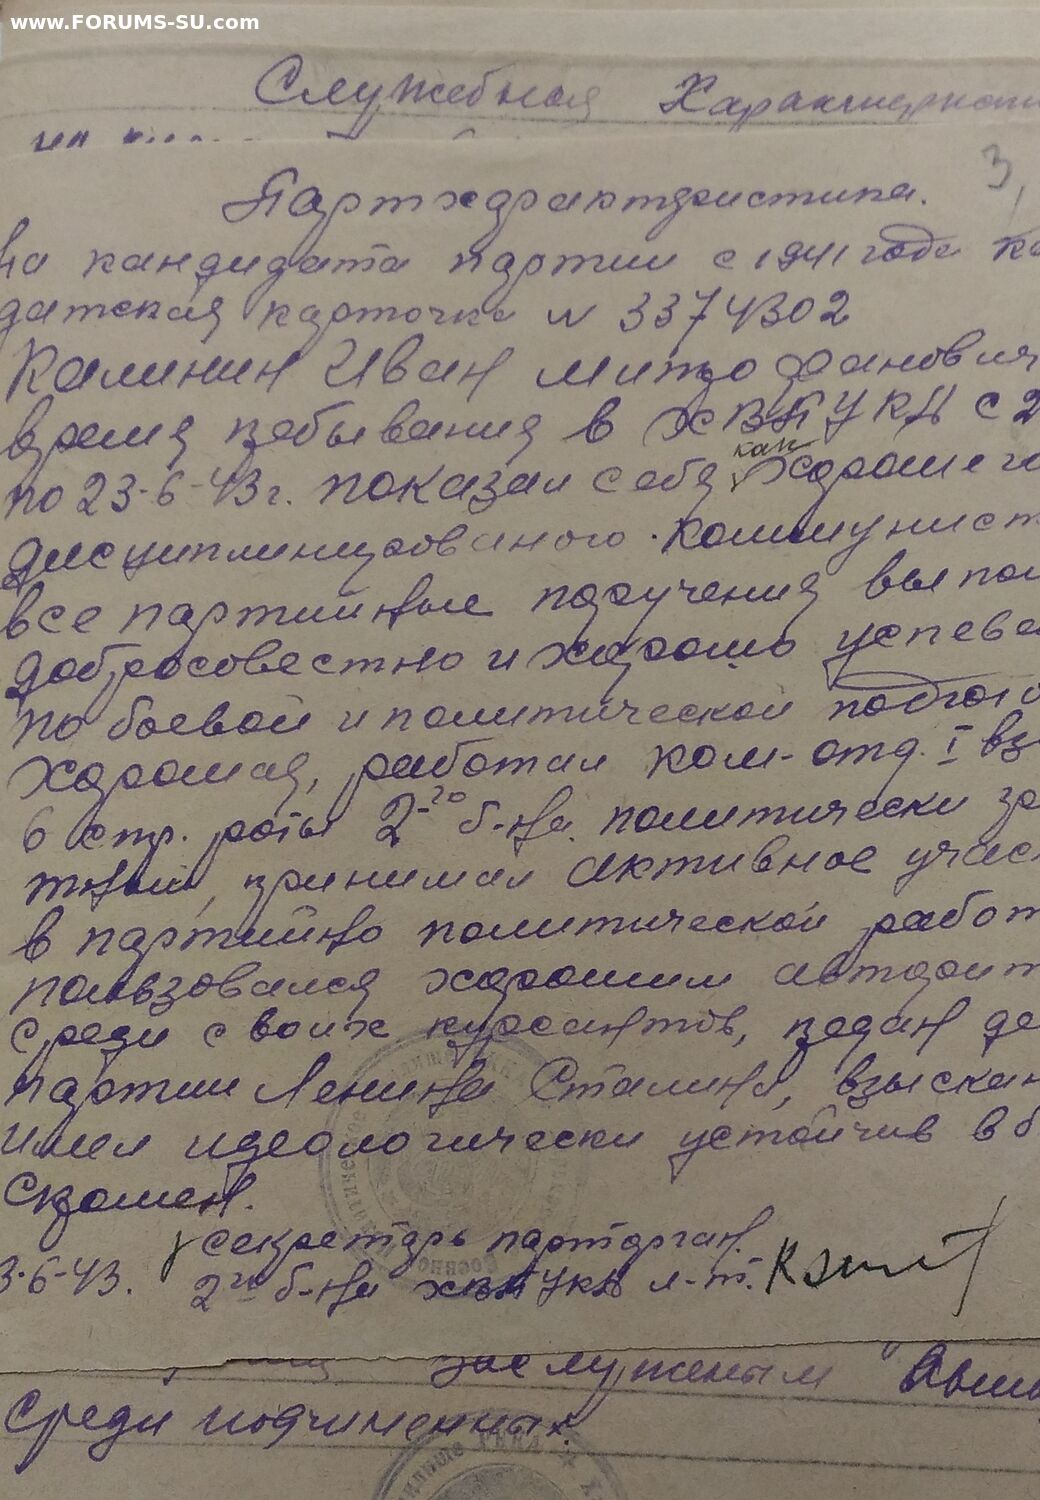 www.FORUMS-SU.com
Служебная Характерист
на
3,
Партхарактеристика.
На кандидата партии с 1941 года ка
датская карточка N 3374302
Калинин Иван Митрофанович
время пебывания в ХВПУКА с 2
по 23-6-43г. показал себя как хорошего
дисциплинированого коммунист
все партийные поручения выпол
добросовестно и хорошо успева
по боевой и политической подгот
хорошая, работал ком-отд. I вз
6 стр. роты 2-го б-на. политически гра
тный, принимал активное учас
в партийно политической работ
пользовался хорошим авторит
среди своих курсантов, предан де
партии Ленина Сталина, взыскан
имел идеологически устойчив в б
скромен.
Секретарь парторган.
3-6-43. 2го б-на ХВПУКА л-т.
заслуженым
среди подчиненных.